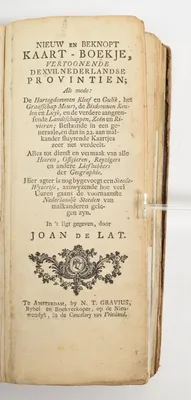 NIEUW EN BEKNOPT
KAART-BOEKJE,
VERTOONENDE
DE XVII. NEDERLANDSE
PROVINTIEN;
Als mede:
De Hartogdommen Kleef en Gulik, het
Graafschap Meurs, de Bisdommen Keu-
len en Luyk, en de verdere aangren-
sende Landschappen, Zeën en Ri-
vieren; Bestaande in een ge-
neraale, en dan in 22. aan mal-
kander sluytende Kaartjes
zeer net verdeelt.
Alles tot dienst en vermaak van alle
Heeren, Officieren, Reyzigers
en andere Liefhebbers
der Geographie.
Hier agter is nog bygevoegt een Steede-
Wyzertje, aanwyzende hoe veel
Uuren gaans de voornaamste
Nederlandsche Steeden van
malkanderen gele-
gen zyn.
In 't ligt gegeven, door
JOAN DE LAT.
Te AMSTERDAM, by N. T. GRAVIUS,
Bybel en Boekverkooper, op de Nieu-
wendyk, in de Cancellary van Friesland.